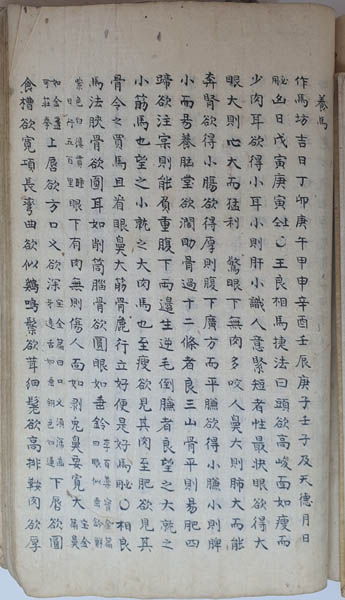 養馬
作馬坊吉日丁卯庚午甲申辛酉壬辰庚子壬子及天德月日
凶日戊寅庚寅 王良相馬捷法曰頭欲高峻面如瘦而
少肉耳欲得小耳小則肝小識人意緊短者性最快眼欲得大
眼大則心大而猛利 驚眼下無肉多咬人鼻大則肺大而能
奔腎欲得小腸欲得厚則腹下廣方而平膁欲得小膁小則脾
小而易養腦堂欲濶助骨過十二條者良三山骨平則易肥四
蹄欲注宲則能負重腹下兩邉生逆毛倒膁者良望之大就之
小筋馬也望之小就之大肉馬也至瘦欲見其肉至肥欲見其
骨今之買馬且省眼鼻大筋骨麄行立好便是好馬 相良
馬法䀹骨欲圓耳如削筒腦骨欲圓眼如垂鈴
眼下有肉無則傷人面如剥兔鼻要寛大
上唇欲方口叉欲深 下唇欲圓
食槽欲寛項長弯曲欲似鷄鳴鬃欲茸細鬐欲高排鞍肉欲厚